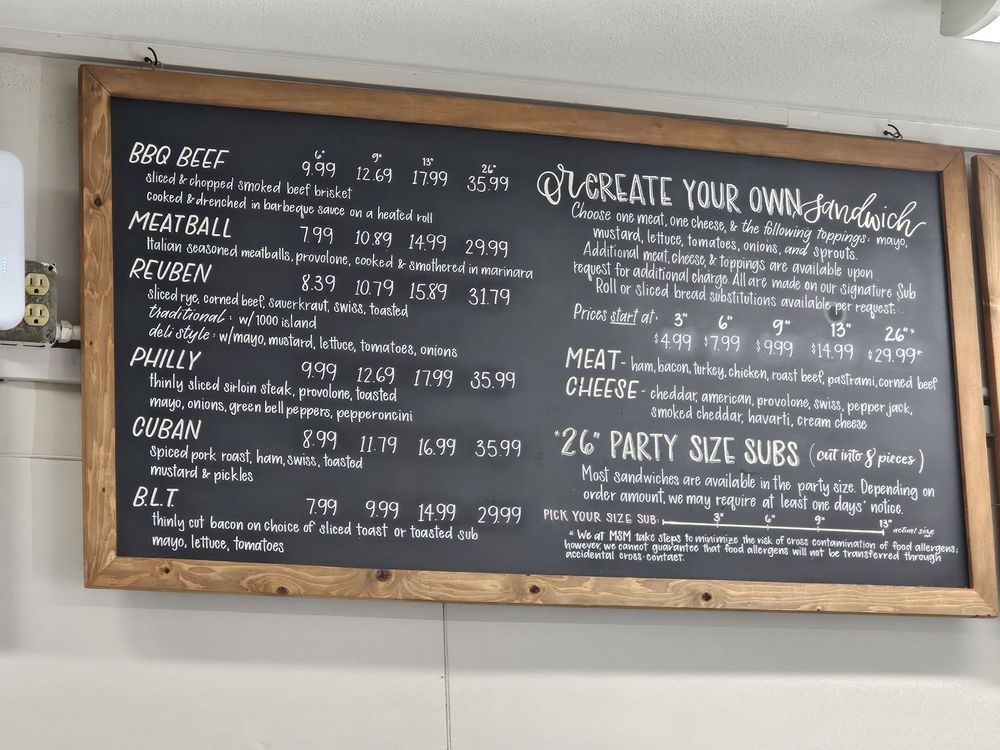 6" 9" 13" 26"
BBQ BEEF 9.99 12.69 17.99 35.99
sliced & chopped smoked beef brisket
cooked & drenched in barbeque sauce on a heated roll
MEATBALL 7.99 10.89 14.99 29.99
Italian seasoned meatballs, provolone, cooked & smothered in marinara
REUBEN 8.39 10.79 15.89 31.79
sliced rye, corned beef, sauerkraut, swiss, toasted
traditional: w/1000 island
deli style: w/mayo, mustard, lettuce, tomatoes, onions
PHILLY 9.99 12.69 17.99 35.99
thinly sliced sirloin steak, provolone, toasted
mayo, onions, green bell peppers, pepperoncini
CUBAN 8.99 11.79 16.99 35.99
spiced pork roast, ham, swiss, toasted
mustard & pickles
B.L.T. 7.99 9.99 14.99 29.99
thinly cut bacon on choice of sliced toast or toasted sub
mayo, lettuce, tomatoes
or CREATE YOUR OWN sandwich
Choose one meat, one cheese, & the following toppings: mayo,
mustard, lettuce, tomatoes, onions, and sprouts.
Additional meat, cheese, & toppings are available upon
request for additional charge. All are made on our signature Sub
Roll or sliced bread substitutions available per request.
Prices start at: 3" 6" 9" 13" 26"*
$4.99 $7.99 $9.99 $14.99 $29.99*
MEAT - ham, bacon, turkey, chicken, roast beef, pastrami, corned beef
CHEESE - cheddar, american, provolone, swiss, pepper jack,
smoked cheddar, havarti, cream cheese
*26" PARTY SIZE SUBS (cut into 8 pieces)
Most sandwiches are available in the party size. Depending on
order amount, we may require at least one days' notice.
PICK YOUR SIZE SUB: 3" 6" 9" 13" actual size
* We at MSM take steps to minimize the risk of cross contamination of food allergens;
however, we cannot guarantee that food allergens will not be transferred through
accidental cross-contact.